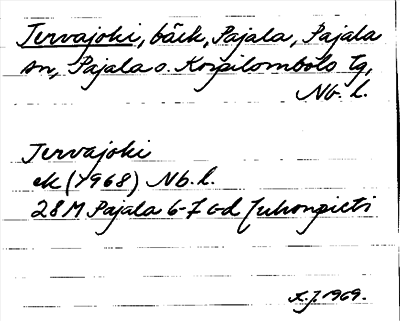 Tervajoki, bäck, Pajala, Pajala
sn, Pajala o. Korpilombolo tg,
Nb. l.
Tervajoki
ek (1968) Nb. l.
28 M Pajala 6-7 c-d Juhonpieti
K.J. 1969.